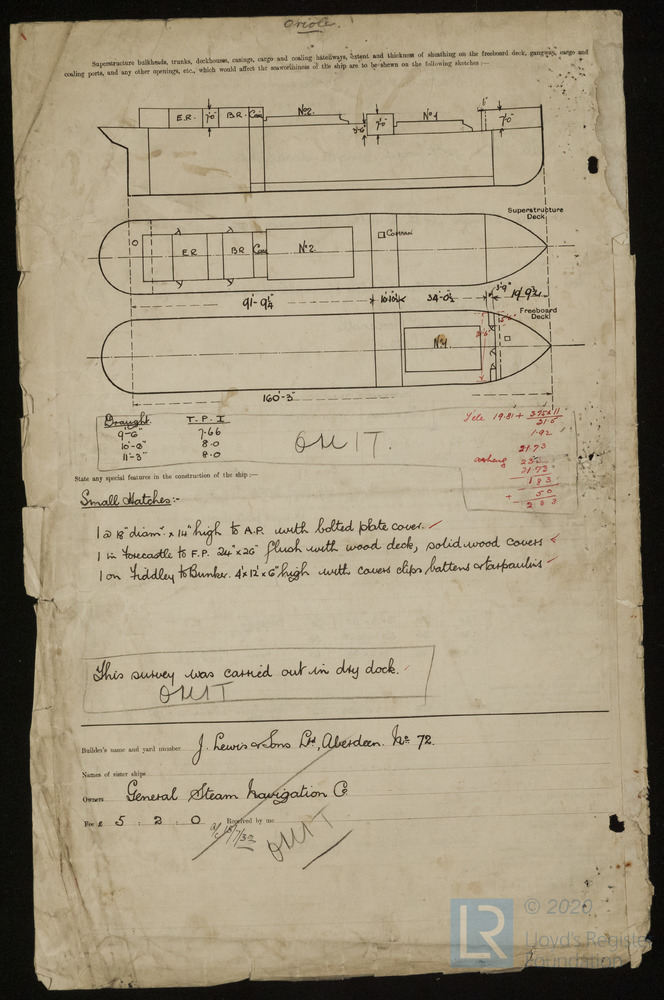 Oriole.
Superstructure bulkheads, trunks, deckhouses, casings, cargo and coaling hatchways, extent and thickness of sheathing on the freeboard deck, gangway, cargo and
coaling ports, and any other openings, etc., which would affect the seaworthiness of the ship are to be shewn on the following sketches :—
E.R. 7'0" B.R. Coal No2. 3'-6" 7'0" No1 7'0"
Superstructure
Deck
O E.R. B.R. Coal No2. Compan
91'-9¼" 34'-0½" 3'-9" 19'9¾"
Freeboard
Deck
No1.
160'-3"
Draught. T.P.I
9'-6" 7.66
10'-3" 8.0
11'-3" 8.0
OMIT.
19.81 + 3.75x11
21.5
1.92
21.73
21.73
1.83
.50
2.33
State any special features in the construction of the ship :—
Small Hatches:-
1 @ 18" diamr. x 14" high to A.P. with bolted plate cover. ✓
1 in Forecastle to F.P. 24"x26" flush with wood deck, solid wood covers ✓
1 on Fiddley to Bunker. 4'x12'x6" high with covers clips battens & tarpaulins ✓
This survey was carried out in dry dock.
OMIT
Builder's name and yard number J. Lewis & Sons Ltd, Aberdeen. No 72.
Names of sister ships
Owners General Steam Navigation Co
Fee £ 5 : 2 : 0 Received by me
OMIT
LR © 2020
Lloyd's Register
Foundation